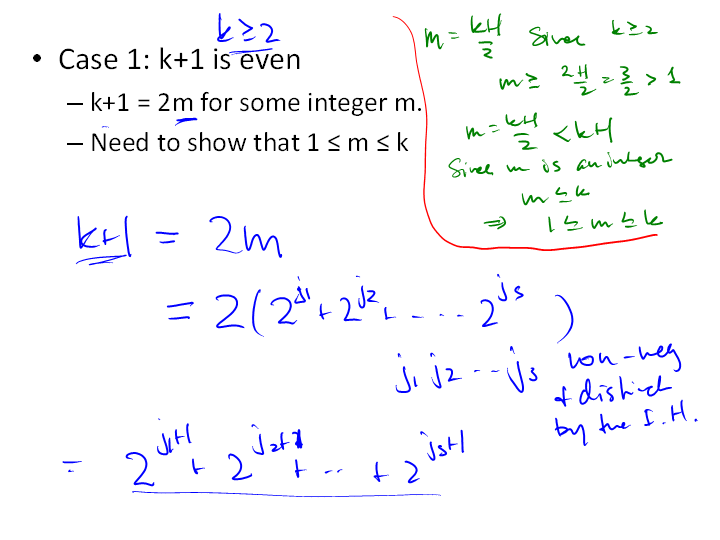 k≥2
• Case 1: k+1 is even
– k+1 = 2m for some integer m.
– Need to show that 1 ≤ m ≤ k
m = k+1/2 Since k≥2
m ≥ 2+1/2 = 3/2 > 1
m = k+1/2 < k+1
Since m is an integer
m ≤ k
⇒ 1 ≤ m ≤ k
k+1 = 2m
= 2(2^j1 + 2^j2 + - - - 2^js)
j1 j2 -- js non-neg
& distinct
by the I.H.
= 2^j1+1 + 2^j2+1 + -- + 2^js+1